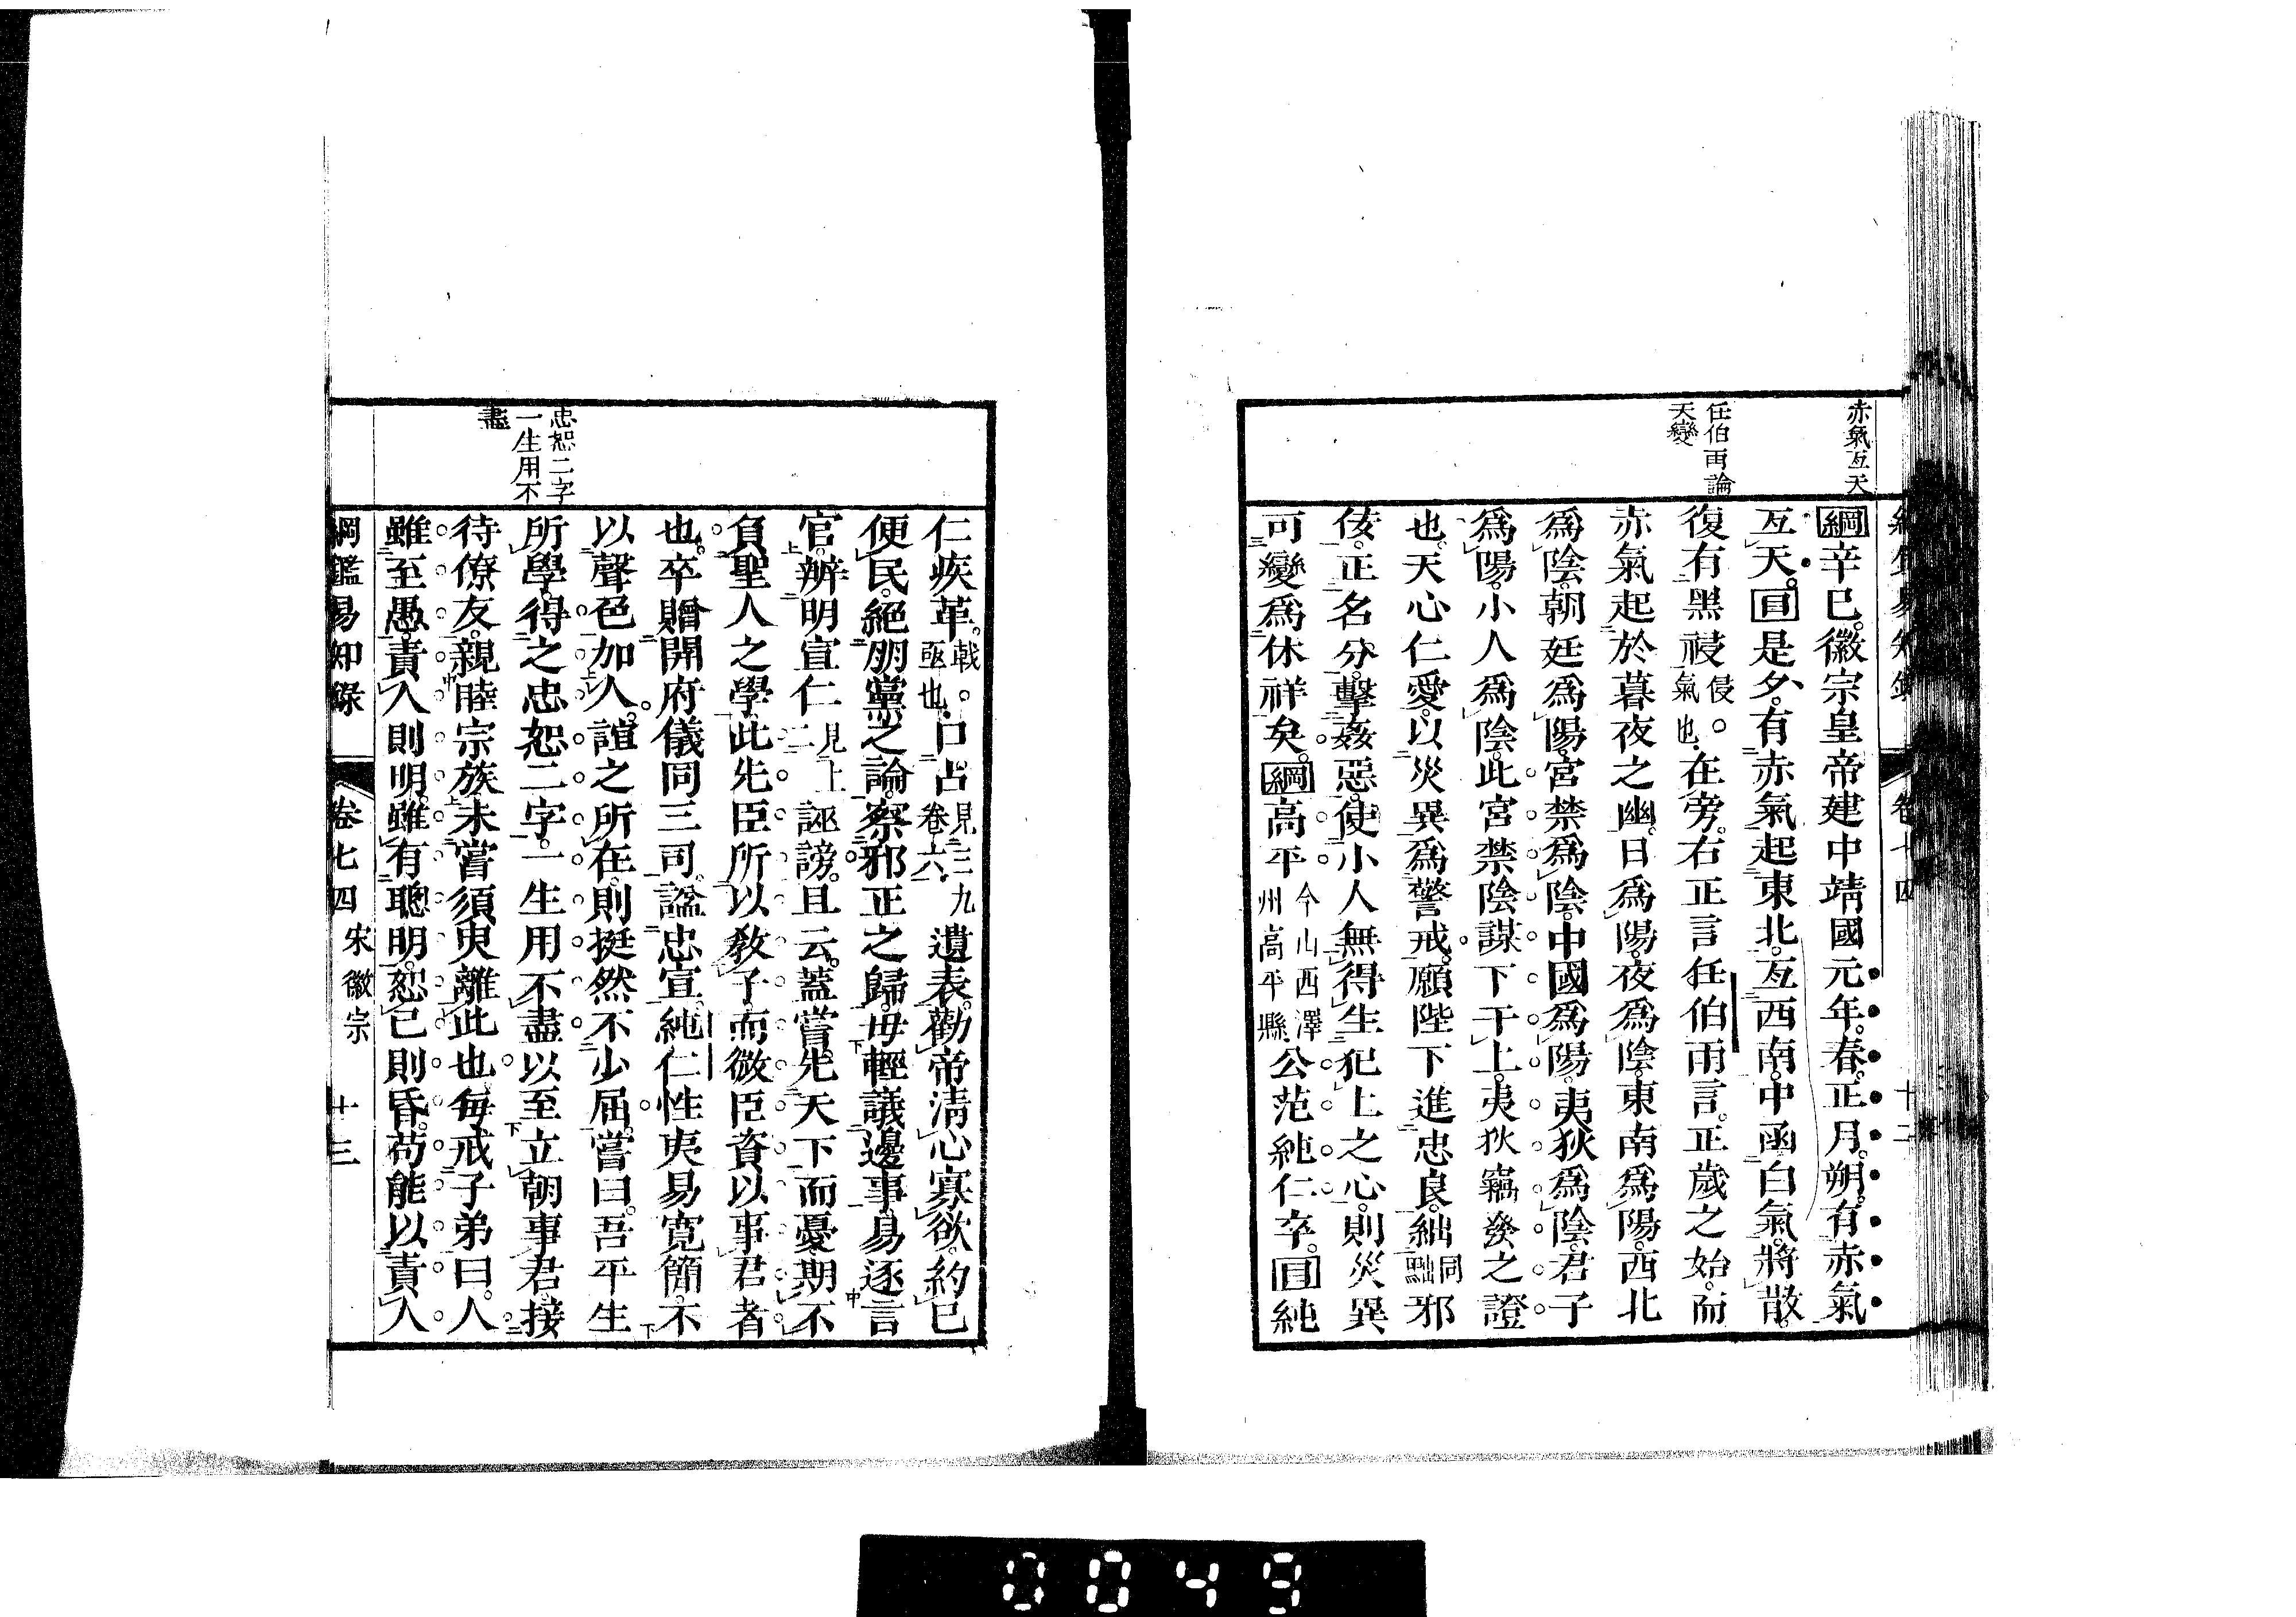 赤氣亙天
任伯雨論
天變
綱辛巳。徽宗皇帝建中靖國元年。春。正月。朔。有赤氣
亙天。目是夕。有赤氣起東北。亙西南。中函白氣。將散。
復有黑祲侵氣也。在旁。右正言任伯雨言。正歲之始。而
赤氣起於暮夜之幽。日為陽。夜為陰。東南為陽。西北
為陰。朝廷為陽。宮禁為陰。中國為陽。夷狄為陰。君子
為陽。小人為陰。此宮禁陰謀下干上。夷狄竊發之證
也。天心仁愛。以災異為警戒。願陛下進忠良。絀同黜邪
佞。正名分。擊姦惡。使小人無得生犯上之心。則災異
可變為休祥矣。綱高平今山西澤州高平縣公范純仁卒。目純
卷七十四
十二
忠恕二字
一生用不
盡
仁疾革。戟。亟也。口占見三九卷六。遺表。勸帝清心寡欲。約己
便民。絕朋黨之論。察邪正之歸。毋輕議邊事。易逐言
官。辨明宣仁見上二誣謗。且云。蓋嘗先天下而憂。期不
負聖人之學。此先臣所以教子。而微臣資以事君者
也。卒贈開府儀同三司。諡忠宣。純仁性夷易寬簡。不
以聲色加人。誼之所在。則挺然不少屈。嘗曰。吾平生
所學。得之忠恕二字。一生用不盡。以至立朝事君。接
待僚友。親睦宗族。未嘗須臾離此也。每戒子弟曰。人
雖至愚。責人則明。雖有聰明。恕己則昏。苟能以責人
綱鑑易知錄 卷七四 宋徽宗 十三
0049